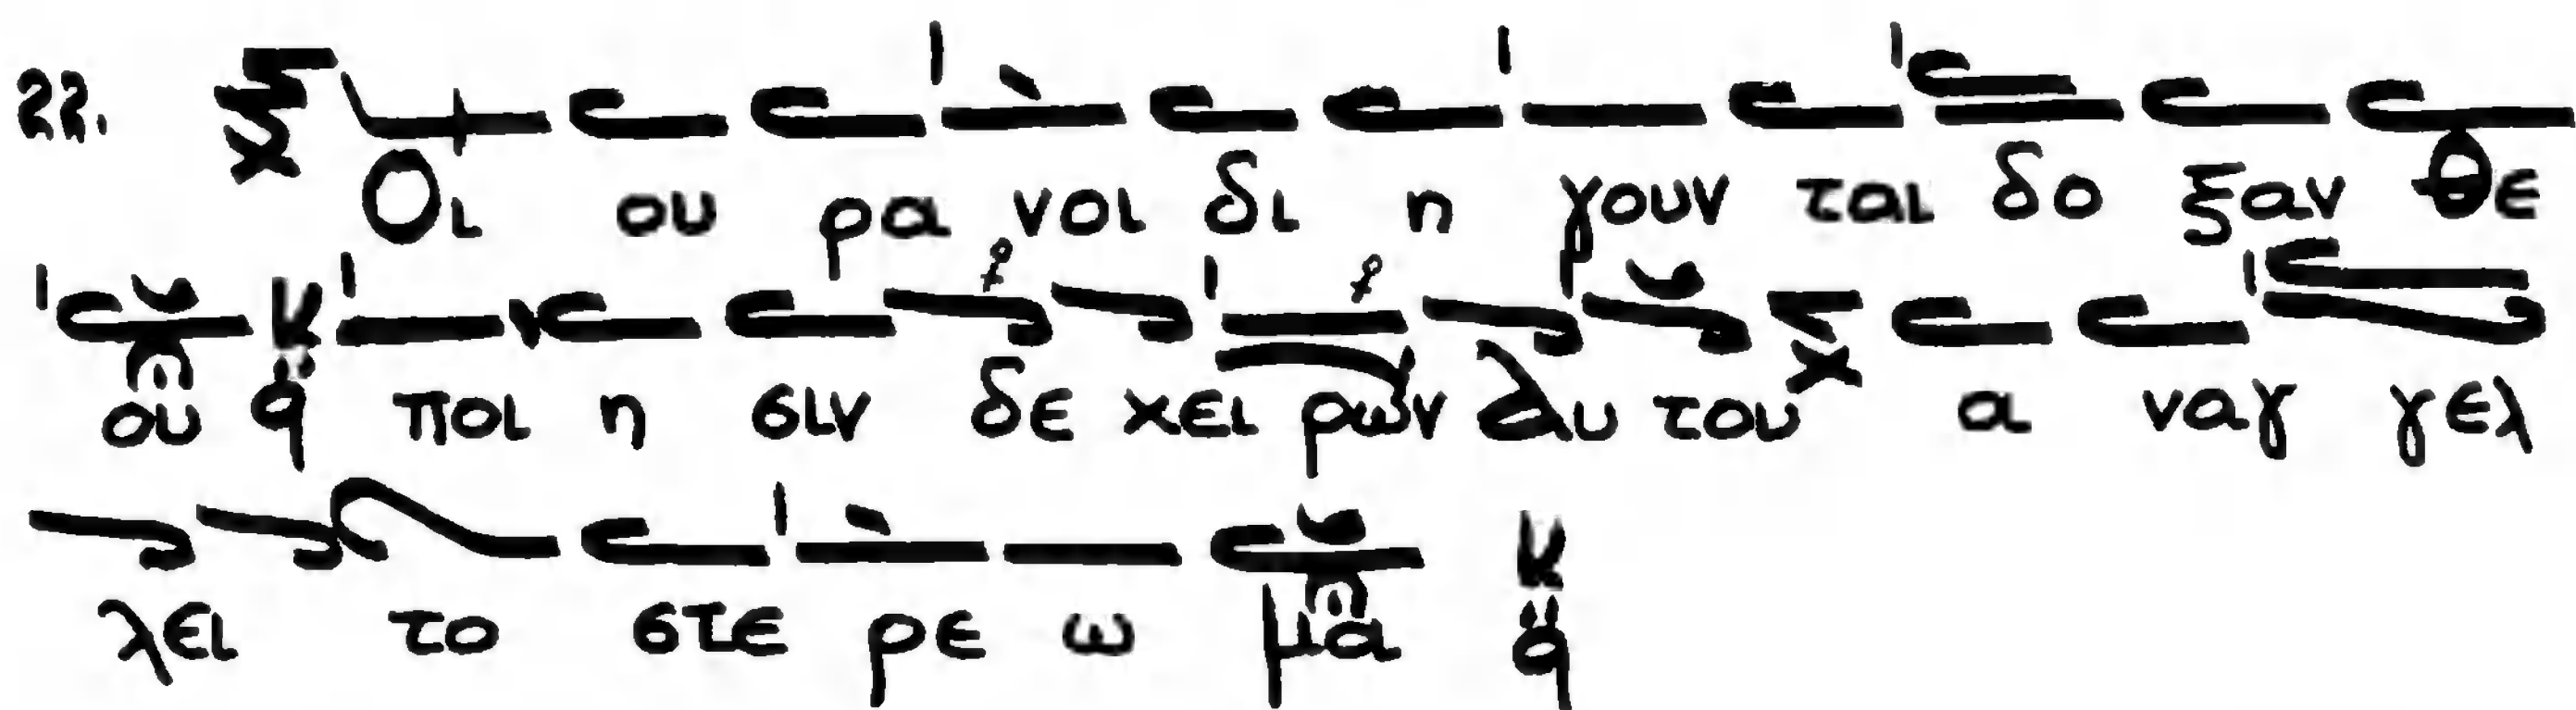 22. Οι ου ρα νοι δι η γουν ται δο ξαν θε
ου κ q ποι η σιν δε χει ρων αυ του α ναγ γελ
λει το στε ρε ω μα κ q